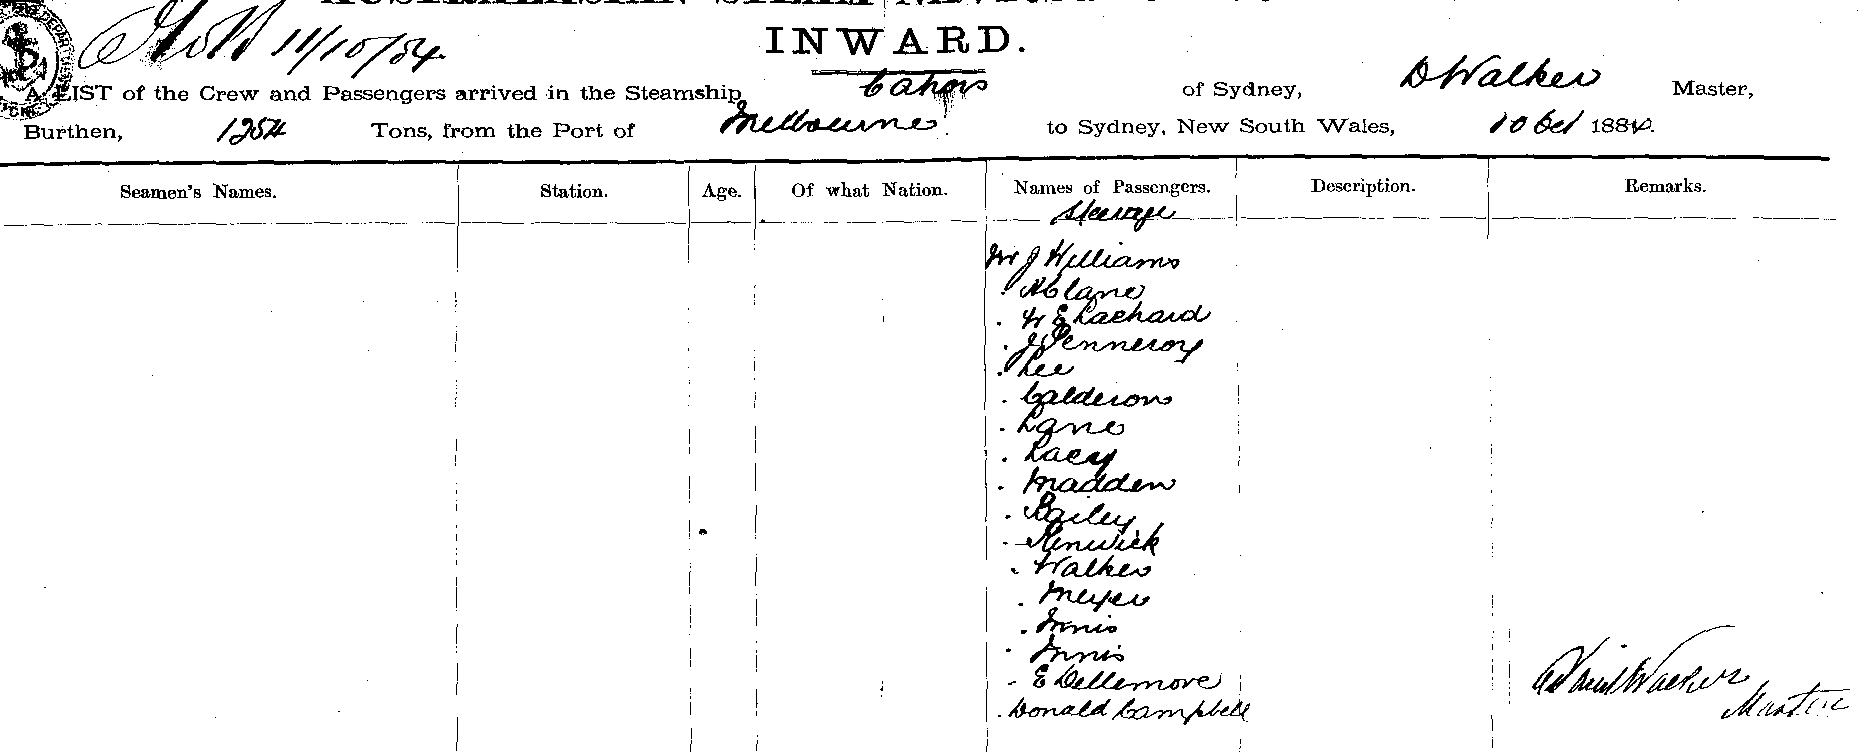 INWARD.
11/10/84
A LIST of the Crew and Passengers arrived in the Steamship Cahors of Sydney, D Walker Master,
Burthen, 1254 Tons, from the Port of Melbourne to Sydney, New South Wales, 10 Oct 1884.
Seamen's Names. Station. Age. Of what Nation. Names of Passengers. Description. Remarks.
Steerage
Mr J Williams
. Lachard
. J Penneroy
. Lee
. Calderon
. Lane
. Lacy
. Madden
. Bailey
. Renwick
. Walker
. Meyer
. Innis
. Innis
. E Dellemore
. Donald Campbell
David Walker
Master